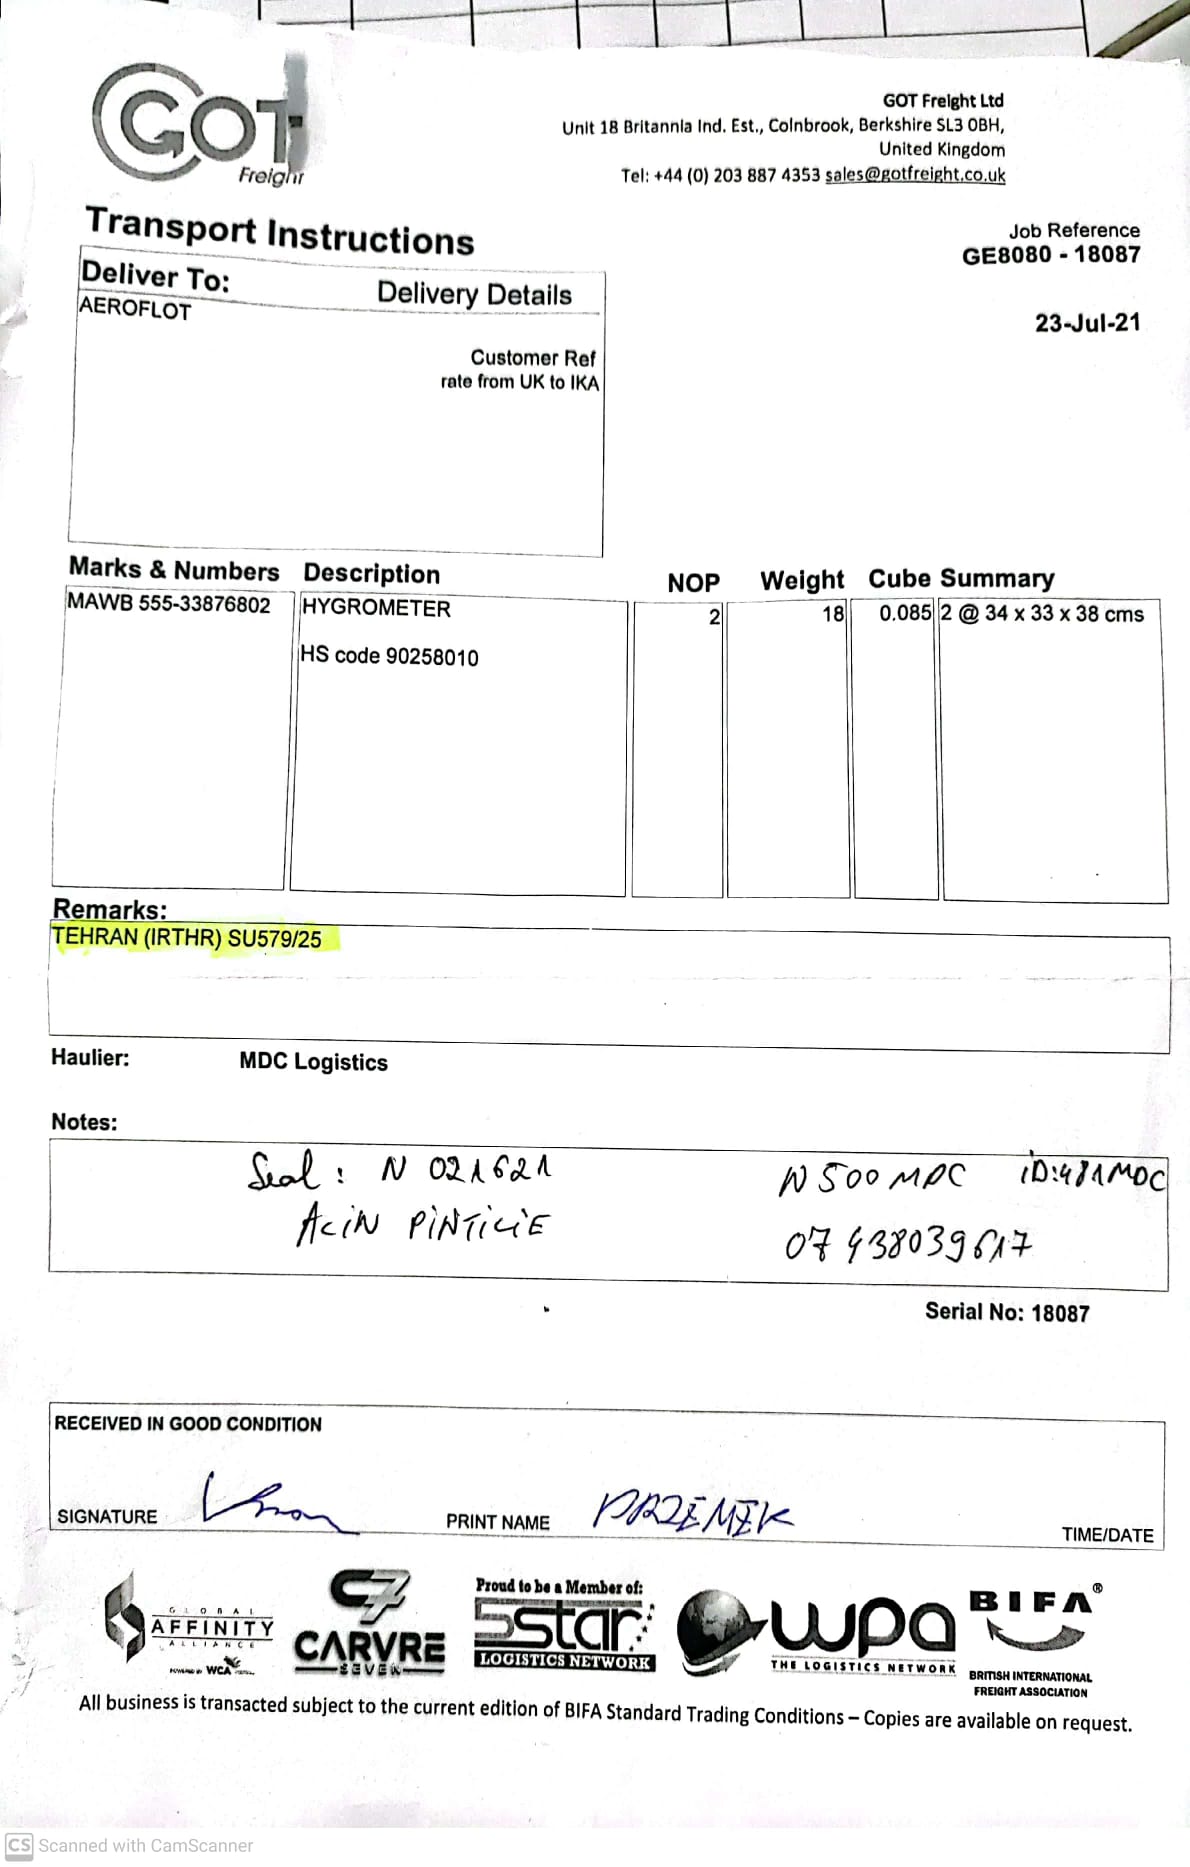 GOT
Freight
GOT Freight Ltd
Unit 18 Britannia Ind. Est., Colnbrook, Berkshire SL3 0BH,
United Kingdom
Tel: +44 (0) 203 887 4353 sales@gotfreight.co.uk
Transport Instructions
Job Reference
GE8080 - 18087
23-Jul-21
Deliver To:
Delivery Details
AEROFLOT
Customer Ref
rate from UK to IKA
Marks & Numbers Description NOP Weight Cube Summary
MAWB 555-33876802 HYGROMETER 2 18 0.085 2 @ 34 x 33 x 38 cms
HS code 90258010
Remarks:
TEHRAN (IRTHR) SU579/25
Haulier: MDC Logistics
Notes:
Seal: N 021621 N500 MDC iD:481MDC
AciN PiNTiLiE 07438039617
Serial No: 18087
RECEIVED IN GOOD CONDITION
SIGNATURE PRINT NAME PRZEMEK TIME/DATE
GLOBAL
AFFINITY
ALLIANCE
POWERED BY WCA
C7
CARVRE
SEVEN
Proud to be a Member of:
5star
LOGISTICS NETWORK
wpa
THE LOGISTICS NETWORK
BIFA®
BRITISH INTERNATIONAL
FREIGHT ASSOCIATION
All business is transacted subject to the current edition of BIFA Standard Trading Conditions – Copies are available on request.
CS Scanned with CamScanner